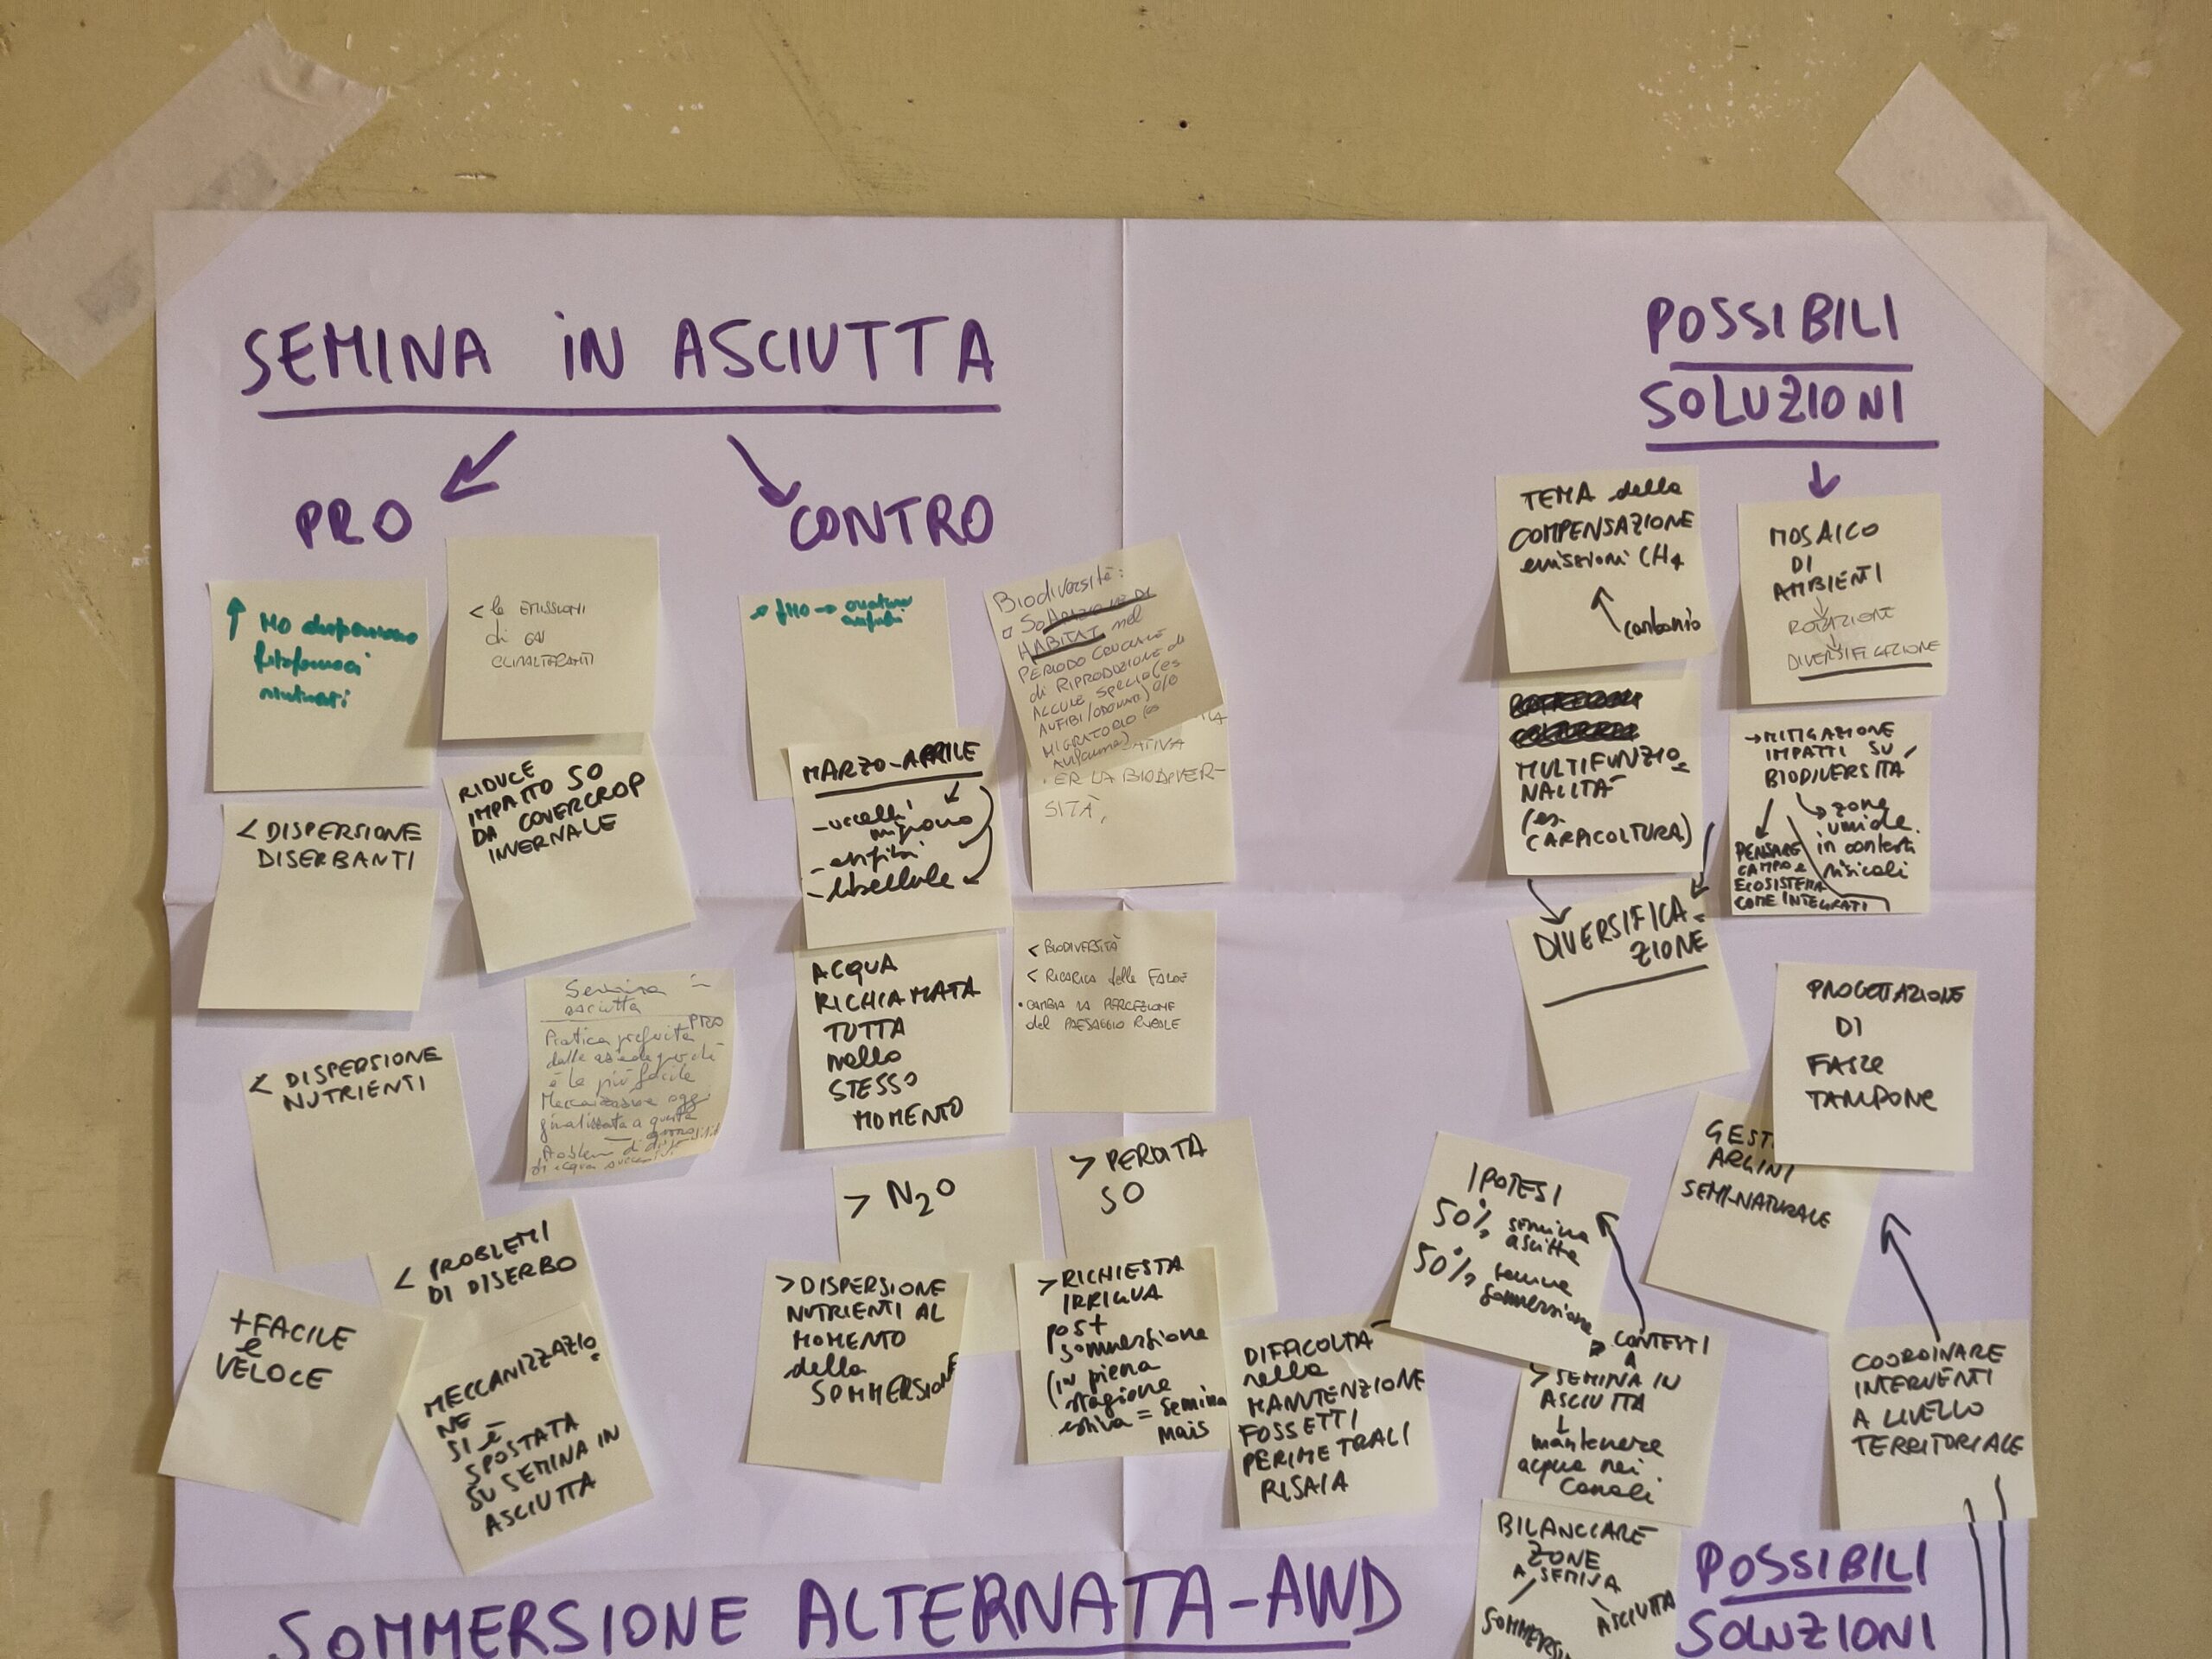 SEMINA iN ASCIUTTA
PRO
CONTRO
POSSIBILI
SOLUZIONI
↑ NO
< le EMISSIONI
di GAS
CLIMALTERANTI
< DISPERSIONE
DISERBANTI
RIDUCE
IMPATTO SO
DA COVERCROP
INVERNALE
< DISPERSIONE
NUTRIENTI
Semina in
asciutta
PRO
Pratica preferita
dalle aziende perché
è la più facile
Meccanizzazione oggi
finalizzata a questa
Problemi di
di acqua
< PROBLEMI
DI DISERBO
+FACILE
e
VELOCE
MECCANIZZAZIO
NE
SI è
SPOSTATA
SU SEMINA IN
ASCIUTTA
Biodiversità:
HABITAT nel
PERIODO CRUCIALE
di RIPRODUZIONE di
ALCUNE SPECIE (es
ANFIBI/ODONATI) e/o
MIGRATORIO (es
avifauna)
ATIVA
ER LA BIODIVER-
SITÀ,
MARZO-APRILE
-uccelli
migrano
-anfibi
-libellule
ACQUA
RICHIAMATA
TUTTA
nello
STESSO
MOMENTO
< BIODIVERSITÀ
< RICARICA delle FALDE
• CAMBIA LA PERCEZIONE
del PAESAGGIO RURALE
> N2O
> PERDITA
SO
>DISPERSIONE
NUTRIENTI AL
MOMENTO
della
SOMMERSIONE
>RICHIESTA
IRRIGUA
post
sommersione
(in piena
stagione
estiva = semina
mais
DIFFICOLTA
nella
MANUTENZIONE
FOSSETTI
PERIMETRALI
RISAIA
TEMA della
COMPENSAZIONE
emissioni CH4
carbonio
MOSAICO
DI
AMBIENTI
ROTAZIONE
DIVERSIFICAZIONE
MULTIFUNZIO
NALITA'
(es.
CARPICOLTURA)
→MITIGAZIONE
IMPATTI SU
BIODIVERSITÀ
zone
umide
in contesti
risicoli
PENSARE
CAMPO e
ECOSISTEMA
COME INTEGRATI
DIVERSIFICA-
ZIONE
PROGETTAZIONE
DI
FASCE
TAMPONE
GEST
ARGINI
SEMI-NATURALE
IPOTESI
50% semina
asciutta
50% semina
sommersione
CONTESTI
A
> SEMINA IN
ASCIUTTA
mantenere
acqua nei
canali
COORDINARE
INTERVENTI
A LIVELLO
TERRITORIALE
BILANCIARE
ZONE
A SEMINA
SOMMERSI
ASCIUTTA
SOMMERSIONE ALTERNATA-AWD
POSSIBILI
SOLUZIONI